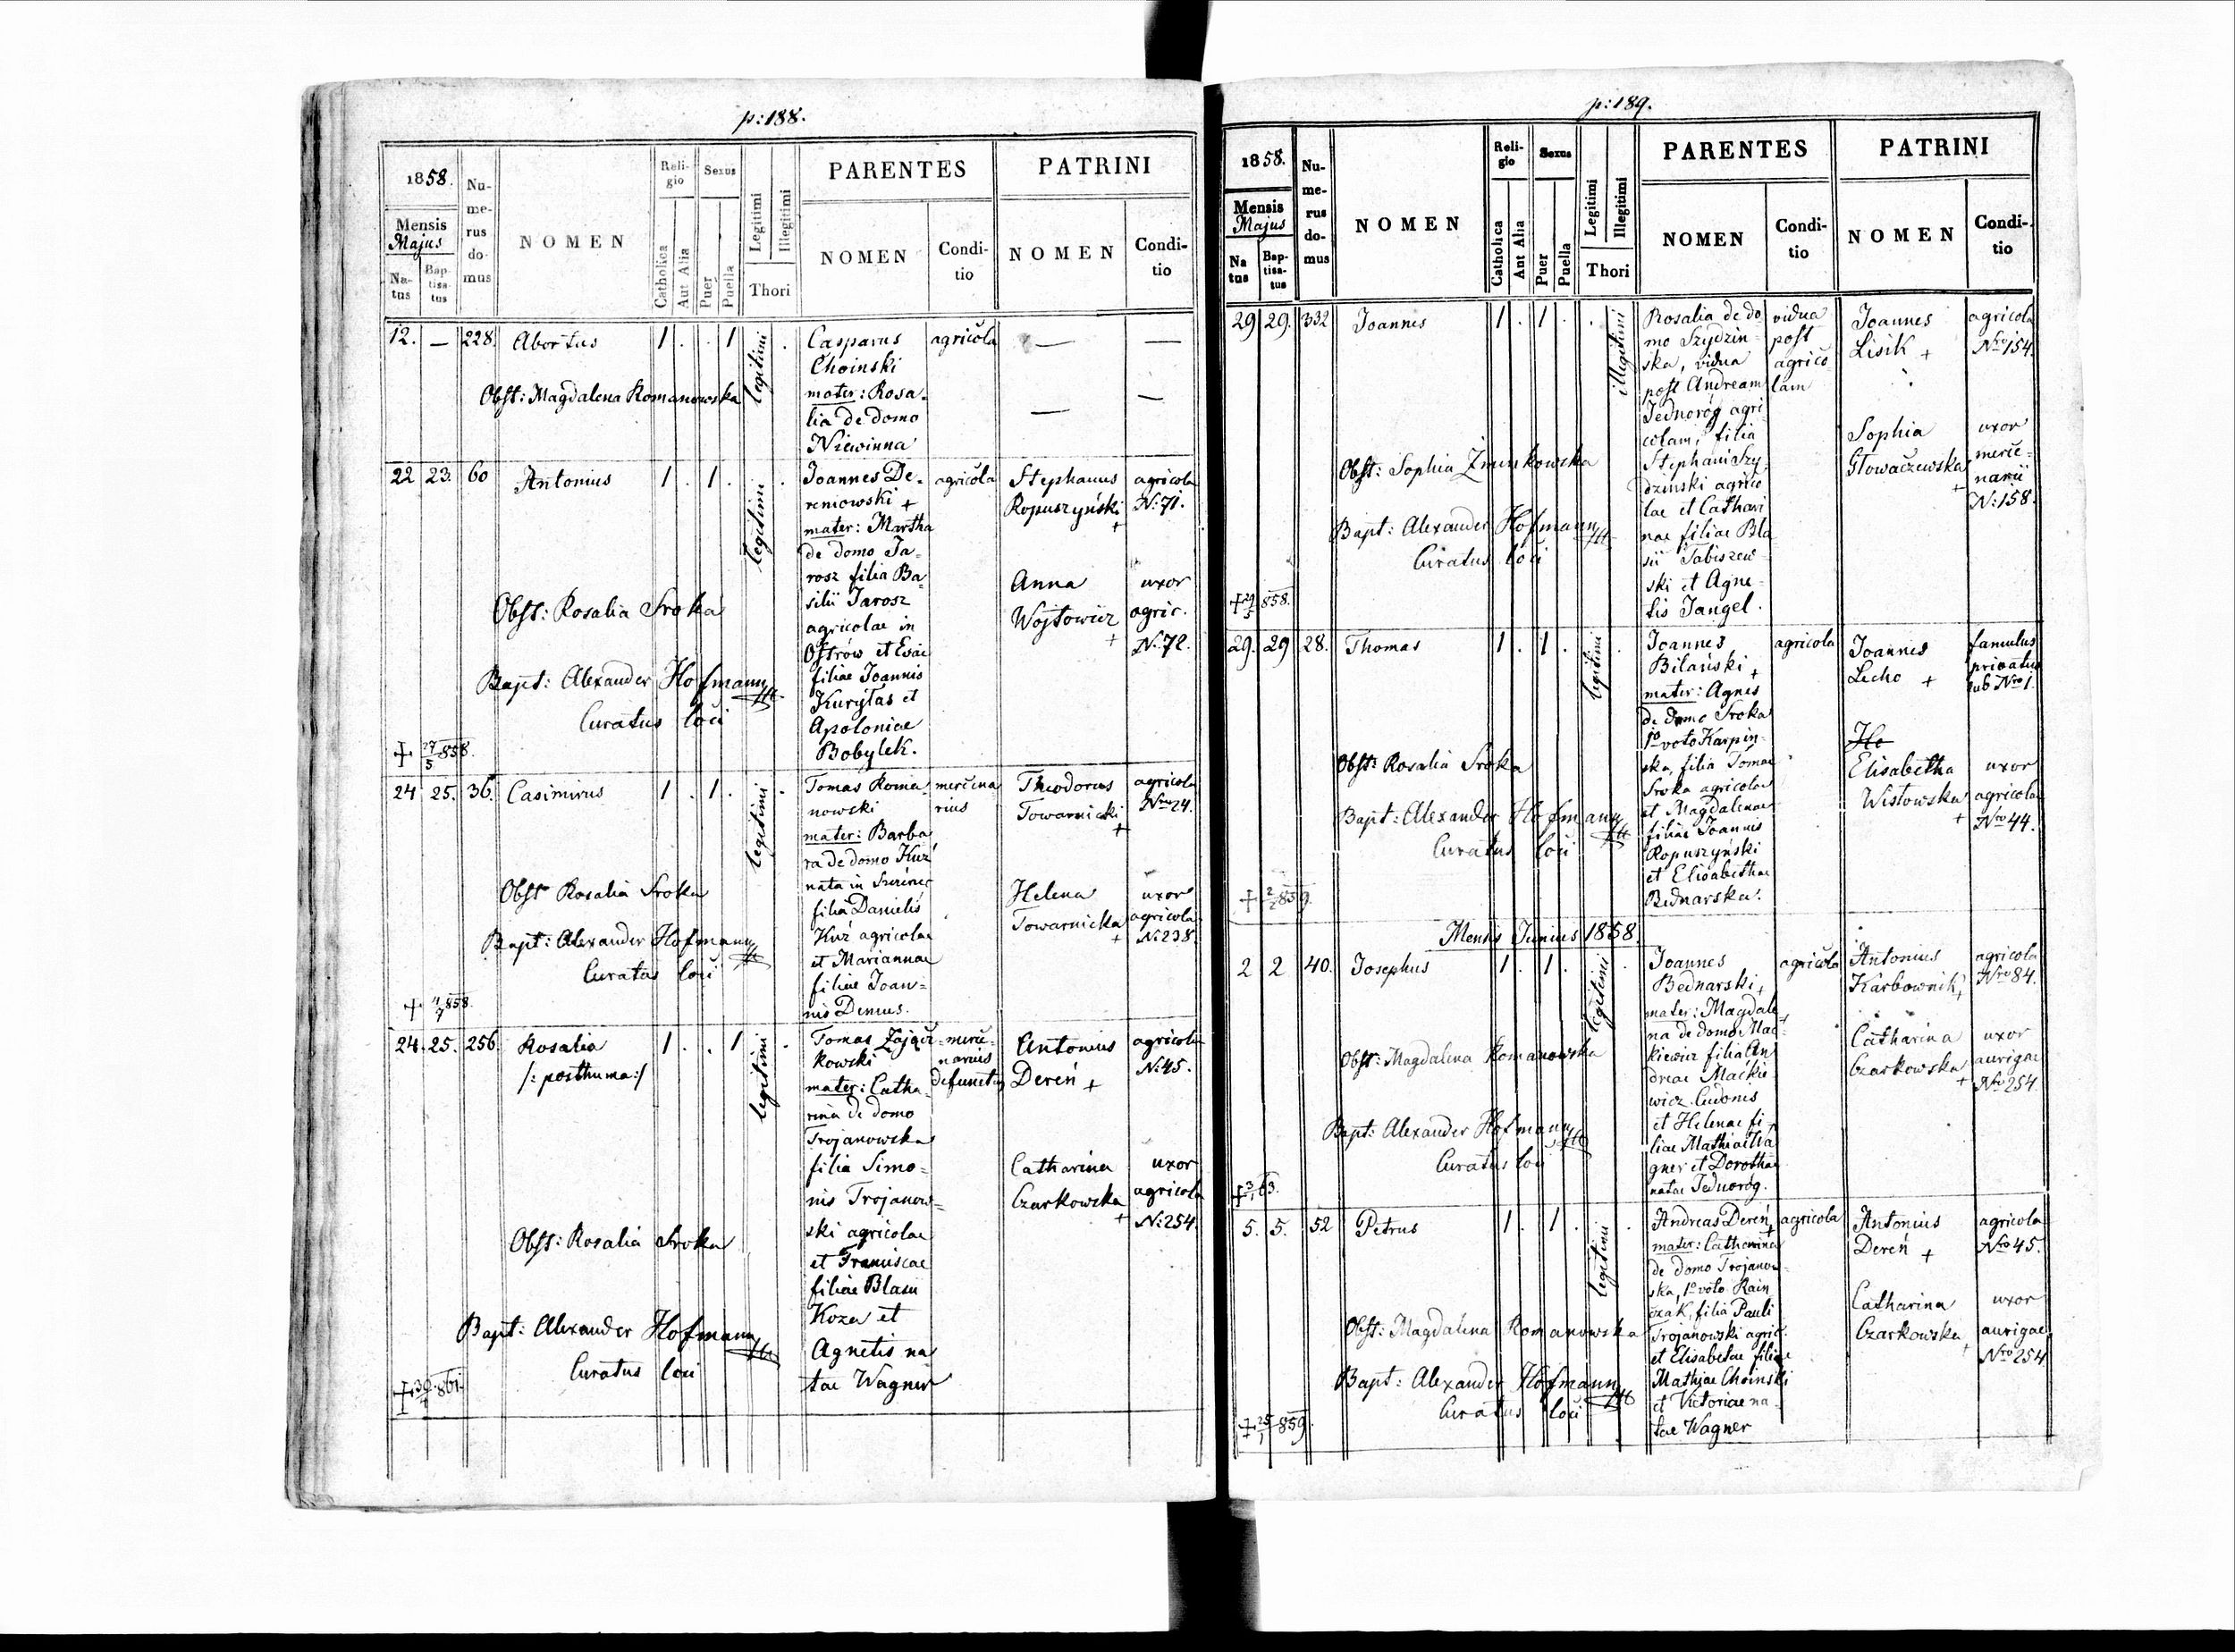 p: 188.
1858.
Mensis
Majus
Na-
tus
Bap-
tisa-
tus
Nu-
me-
rus
do-
mus
NOMEN
Reli-
gio
Catholica
Aut Alia
Sexus
Puer
Puella
Legitimi
Illegitimi
Thori
PARENTES
NOMEN
Condi-
tio
PATRINI
NOMEN
Condi-
tio
12. — 228. Abortus 1 . . 1 legitimi .
Obst: Magdalena Romanowska
Casparus
Choinski
mater: Rosa-
lia de domo
Niewinna
agricola
— —
— —
22 23. 60 Antonius 1 . 1 . legitimi .
Obst: Rosalia Sroka
Bapt: Alexander Hofmann
Curatus loci
+ 27/5 858.
Joannes De-
reniowski +
mater: Martha
de domo Ja-
rosz filia Ba-
silii Jarosz
agricolae in
Ostrów et Evae
filiae Joannis
Kurylas et
Apoloniae
Bobylek.
agricola
Stephanus
Ropuszyński +
agricola
N: 71.
Anna
Wojtowicz +
uxor
agric.
N: 72.
24 25. 36. Casimirus 1 . 1 . legitimi .
Obst Rosalia Sroka
Bapt: Alexander Hofmann
Curatus loci
+ 4/7 858.
Tomas Roma-
nowski
mater: Barba
ra de domo Kuź
nata in
filia Danielis
Kuź agricolae
et Mariannae
filiae Joan-
nis Denius.
mercena
rius
Theodorus
Towarnicki +
agricola
Nro 24.
Helena
Towarnicka +
uxor
agricola
N: 238.
24. 25. 256. Rosalia 1 . . 1 legitimi .
/: posthuma :/
Obst: Rosalia Sroka
Bapt: Alexander Hofmann
Curatus loci
+ 861.
Tomas Zającz-
kowski
mater: Catha-
rina de domo
Trojanowska
filia Simo-
nis Trojanow-
ski agricolae
et Franciscae
filiae Blasii
Koza et
Agnetis na
tae Wagner
merce-
narius
defunctus
Antonius
Dereń +
agricola
N: 45.
Catharina
Czarkowska +
uxor
agricola
N: 254.
p: 189.
1858.
Mensis
Majus
Na
tus
Bap-
tisa-
tus
Nu-
me-
rus
do-
mus
NOMEN
Reli-
gio
Catholica
Aut Alia
Sexus
Puer
Puella
Legitimi
Illegitimi
Thori
PARENTES
NOMEN
Condi-
tio
PATRINI
NOMEN
Condi-
tio
29 29. 332 Joannes 1 . 1 . . illegitimi
Obst: Sophia Zmukowska
Bapt: Alexander Hofmann
Curatus loci
+ 29/5 858.
Rosalia de do
mo Szydzin-
ska, vidua
post Andream
Jednoróg agri
colam, filia
Stephani Szy
dzinski agrico
lae et Cathari
nae filiae Bla
sii Tabiszew
ski et Agne-
tis Jangel.
vidua
post
agrico
lam
Joannes
Lisik +
agricola
Nro 154.
Sophia
Głowaczewska +
uxor
merce-
narii
N: 158.
29. 29 28. Thomas 1 . 1 . legitimi .
Obst: Rosalia Sroka
Bapt: Alexander Hofmann
Curatus loci
+ 2/2 859.
Joannes
Bilański +
mater: Agnes
de domo Sroka
1o voto Karpin-
ska, filia Tomae
Sroka agricolae
et Magdalenae
filiae Joannis
Ropuszyński
et Elisabethae
Bednarska.
agricola
Joannes
Lecho +
famulus
privatus
sub Nro 1.
He
Elisabetha
Wisłowska +
uxor
agricolae
Nro 44.
Mensis Junius 1858.
2 2 40. Josephus 1 . 1 . legitimi .
Obst: Magdalena Romanowska
Bapt: Alexander Hofmann
Curatus loci
+ 63.
Joannes
Bednarski +
mater: Magdale
na de domo Mac-
kiewicz filia An
dreae Mackie
wicz
et Helenae fi
liae Mathiae Wa
gner et Dorothae
natae Jednoróg.
agricola
Antonius
Karbownik +
agricola
Nro 84.
Catharina
Czarkowska +
uxor
aurigae
Nro 254.
5. 5. 52 Petrus 1 . 1 . legitimi .
Obst: Magdalena Romanowska
Bapt: Alexander Hofmann
Curatus loci
+ 25/1 859.
Andreas Dereń +
mater: Catharina
de domo Trojanow-
ska, 1o voto Rain
czak, filia Pauli
Trojanowski agric.
et Elisabetae filiae
Mathiae Choinski
et Victoriae na-
tae Wagner
agricola
Antonius
Dereń +
agricola
Nro 45.
Catharina
Czarkowska +
uxor
aurigae
Nro 254